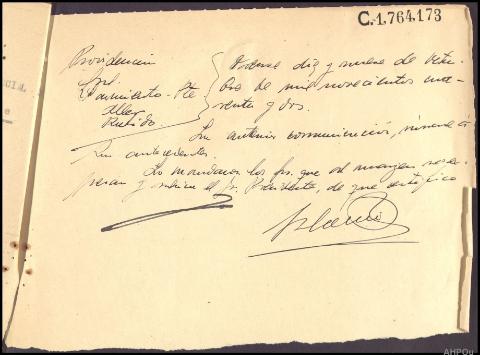 C.1.764.173
Providencia
Orense diez y nueve de Octu-
bre de mil novecientos cua-
renta y dos.
La anterior comunicación, únase a
sus antecedentes.
Lo mandaron los Srs. que al margen se ex-
presan y rubrica el Sr. Presidente, de que certifico
AHPOu